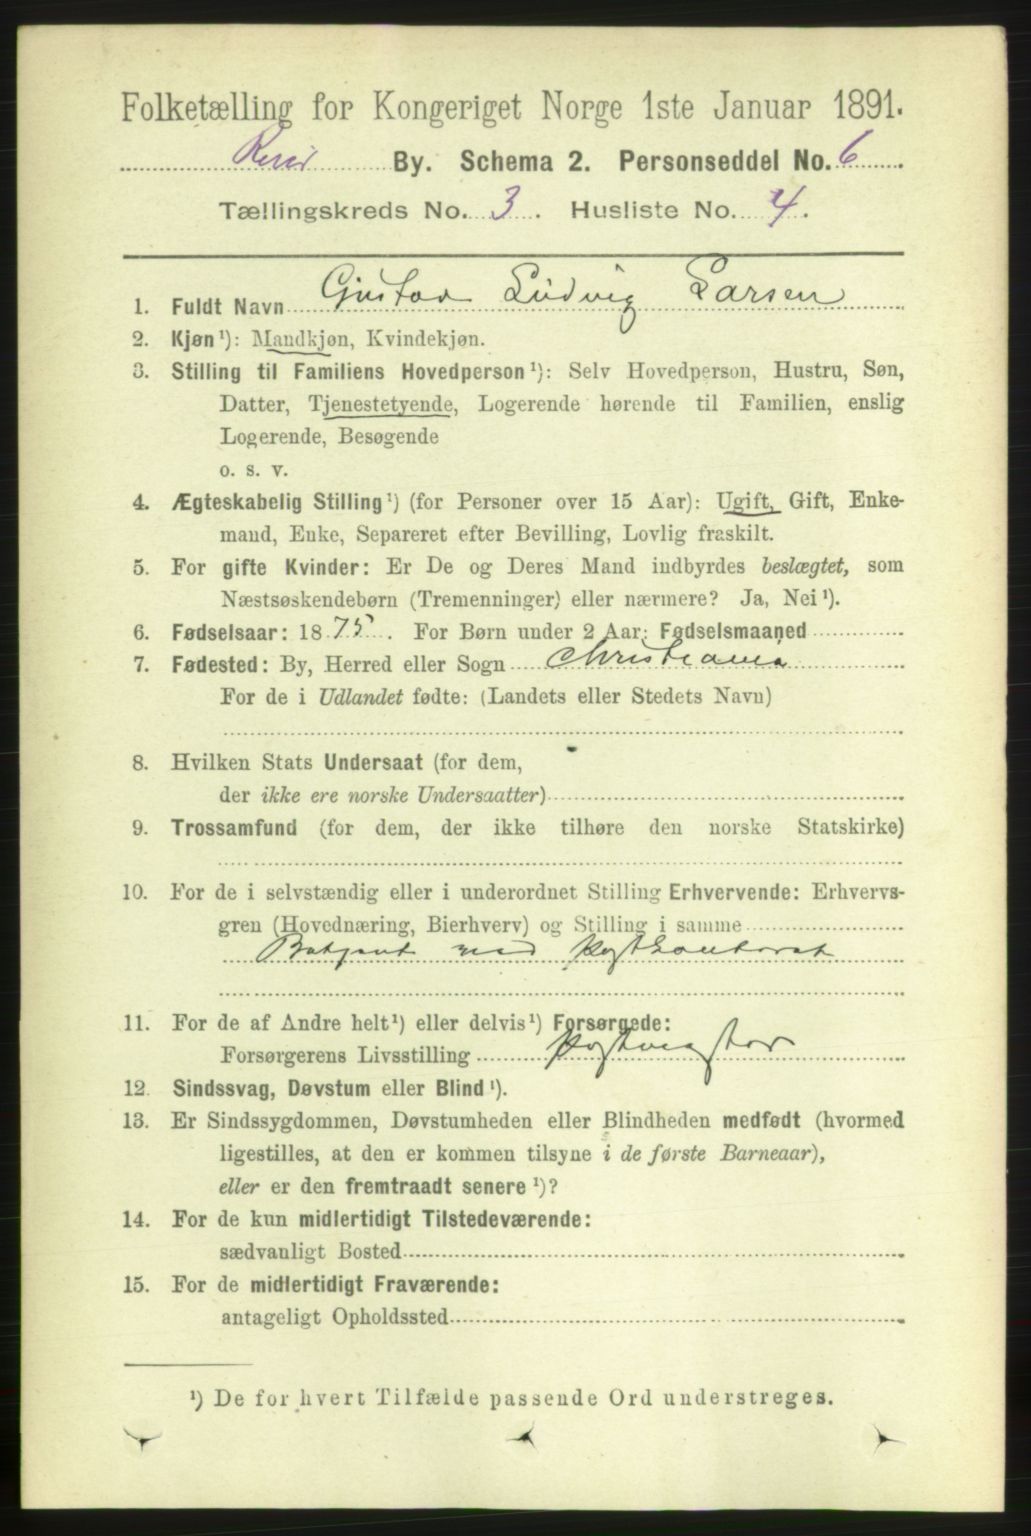 Folketælling for Kongeriget Norge 1ste Januar 1891.
By. Schema 2. Personseddel No. 6
Tællingskreds No. 3. Husliste No. 4.
1. Fuldt Navn Gustav Ludvig Larsen
2. Kjøn¹): Mandkjøn, Kvindekjøn.
3. Stilling til Familiens Hovedperson¹): Selv Hovedperson, Hustru, Søn,
Datter, Tjenestetyende, Logerende hørende til Familien, enslig
Logerende, Besøgende
o. s. v.
4. Ægteskabelig Stilling¹) (for Personer over 15 Aar): Ugift, Gift, Enke-
mand, Enke, Separeret efter Bevilling, Lovlig fraskilt.
5. For gifte Kvinder: Er De og Deres Mand indbyrdes beslægtet, som
Næstsøskendebørn (Tremenninger) eller nærmere? Ja, Nei¹).
6. Fødselsaar: 1875. For Børn under 2 Aar: Fødselsmaaned
7. Fødested: By, Herred eller Sogn Christiania
For de i Udlandet fødte: (Landets eller Stedets Navn)
8. Hvilken Stats Undersaat (for dem,
der ikke ere norske Undersaatter)
9. Trossamfund (for dem, der ikke tilhøre den norske Statskirke)
10. For de i selvstændig eller i underordnet Stilling Erhvervende: Erhvervs-
gren (Hovednæring, Bierhverv) og Stilling i samme
Betjent ved Postkontoret
11. For de af Andre helt¹) eller delvis¹) Forsørgede:
Forsørgerens Livsstilling
12. Sindssvag, Døvstum eller Blind¹).
13. Er Sindssygdommen, Døvstumheden eller Blindheden medfødt (hvormed
ligestilles, at den er kommen tilsyne i de første Barneaar),
eller er den fremtraadt senere¹)?
14. For de kun midlertidigt Tilstedeværende:
sædvanligt Bosted
15. For de midlertidigt Fraværende:
antageligt Opholdssted
¹) De for hvert Tilfælde passende Ord understreges.